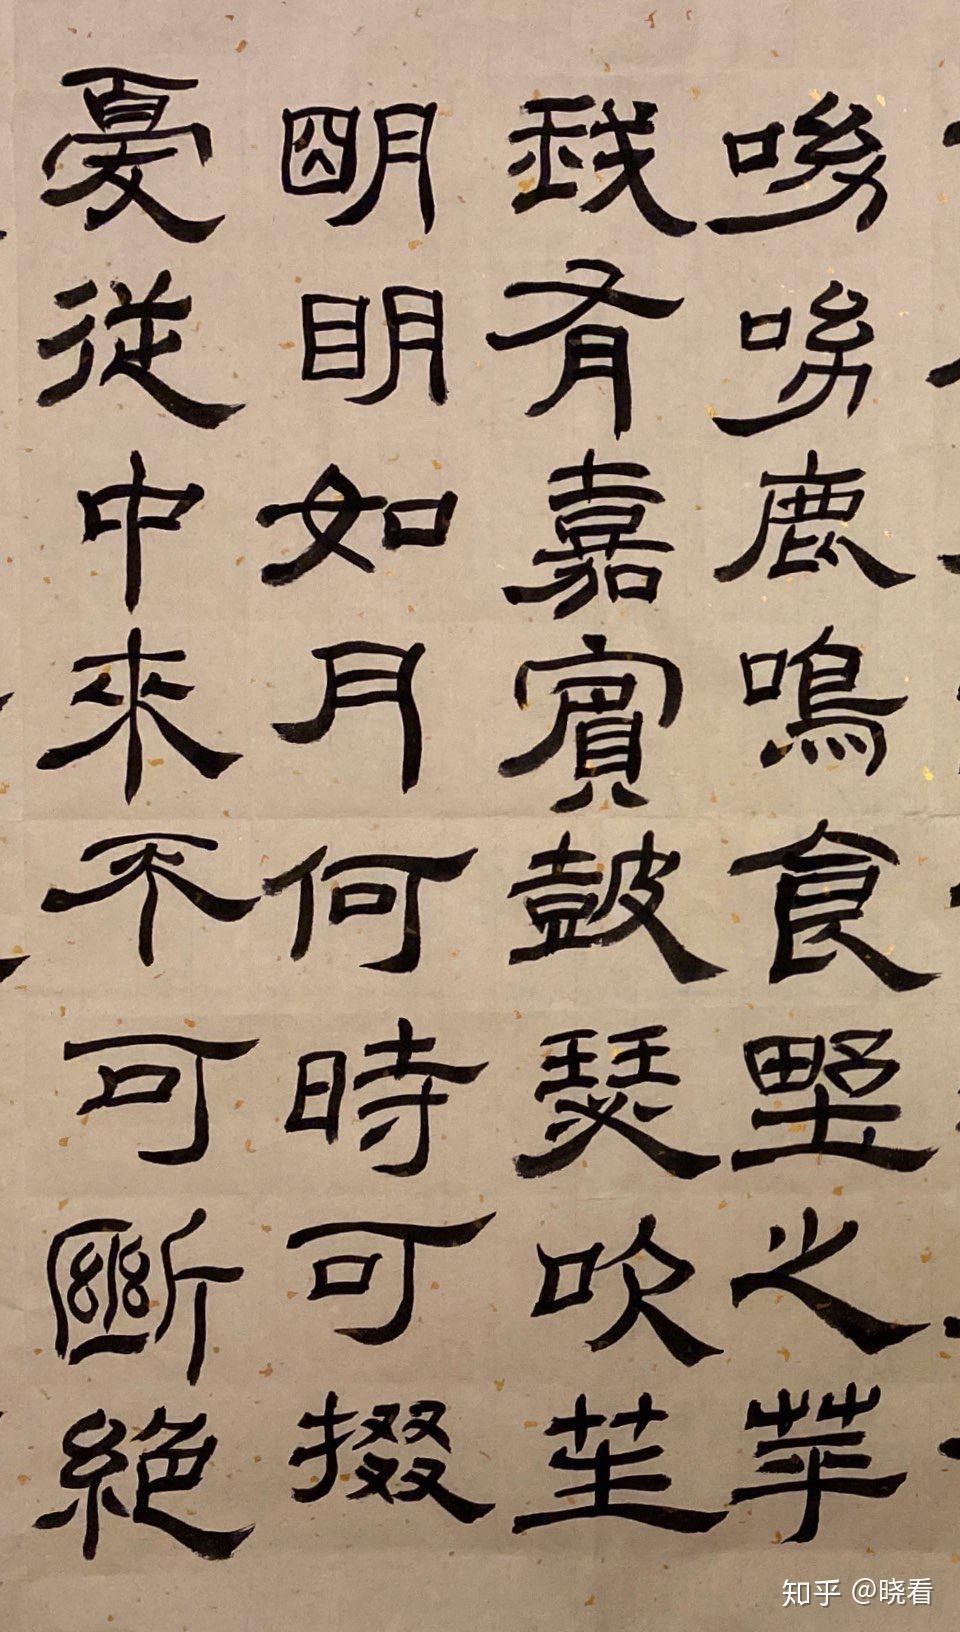 呦呦鹿鳴食野之苹
我有嘉賓鼓瑟吹笙
明明如月何時可掇
憂從中來不可斷絕
知乎 @晓看